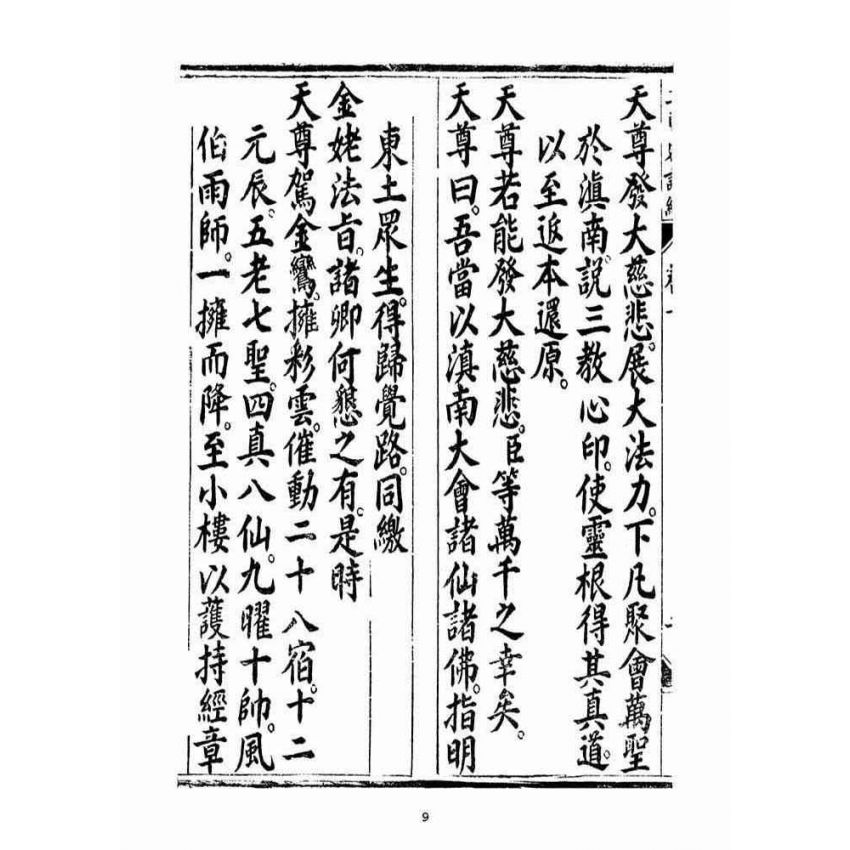 天尊發大慈悲。展大法力。下凡聚會萬聖
於滇南。說三教心印。使靈根得其真道。
以至返本還原。
天尊若能發大慈悲。臣等萬千之幸矣。
天尊曰。吾當以滇南大會諸仙諸佛。指明
東土眾生。得歸覺路。同繳
金姥法旨。諸卿何懇之有。是時
天尊駕金鸞。擁彩雲。催動二十八宿。十二
元辰。五老七聖。四真八仙。九曜十帥。風
伯雨師。一擁而降。至小樓以護持經章
9